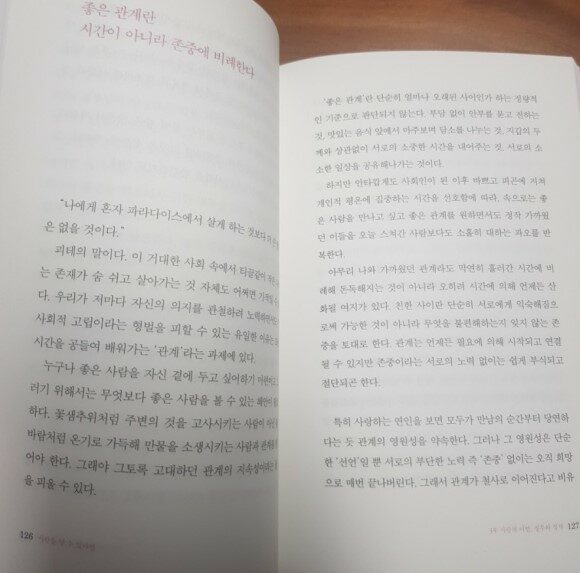 좋은 관계란
시간이 아니라 존중에 비례한다
"나에게 혼자 파라다이스에서 살게 하는 것보다 더 큰
은 없을 것이다."
괴테의 말이다. 이 거대한 사회 속에서 티끌같이 작은
는 존재가 숨 쉬고 살아가는 것 자체도 어쩌면 기적일
다. 우리가 저마다 자신의 의지를 관철하려 노력하면서
사회적 고립이라는 형벌을 피할 수 있는 유일한 이유는
시간을 공들여 배워가는 '관계'라는 과제에 있다.
누구나 좋은 사람을 자신 곁에 두고 싶어하기 마련이고
러기 위해서는 무엇보다 좋은 사람을 볼 수 있는 혜안이
하다. 꽃샘추위처럼 주변의 것을 고사시키는 사람이 아닌
바람처럼 온기로 가득해 만물을 소생시키는 사람과 관계를
어야 한다. 그래야 그토록 고대하던 관계의 지속성이라는
을 피울 수 있다.
126
'좋은 관계'란 단순히 얼마나 오래된 사이인가 하는 정량적
인 기준으로 판단되지 않는다. 부담 없이 안부를 묻고 전하는
것, 맛있는 음식 앞에서 마주보며 담소를 나누는 것, 지갑의 두
께와 상관없이 서로의 소중한 시간을 내어주는 것, 서로의 소
소한 일상을 공유해나가는 것이다.
하지만 안타깝게도 사회인이 된 이후 바쁘고 피곤에 지쳐
개인적 평온에 집중하는 시간을 선호함에 따라, 속으로는 좋
은 사람을 만나고 싶고 좋은 관계를 원하면서도 정작 가까웠
던 이들을 오늘 스쳐간 사람보다도 소홀히 대하는 과오를 반
복한다.
아무리 나와 가까웠던 관계라도 막연히 흘러간 시간에 비
례해 돈독해지는 것이 아니라 오히려 시간에 의해 언제든 산
화될 여지가 있다. 친한 사이란 단순히 서로에게 익숙해짐으
로써 가능한 것이 아니라 무엇을 불편해하는지 잊지 않는 존
중을 토대로 한다. 관계는 언제든 필요에 의해 시작되고 연결
될 수 있지만 존중이라는 서로의 노력 없이는 쉽게 부식되고
절단되곤 한다.
특히 사랑하는 연인을 보면 모두가 만남의 순간부터 당연하
다는 듯 관계의 영원성을 약속한다. 그러나 그 영원성은 단순
한 '선언'일 뿐 서로의 부단한 노력 즉 '존중' 없이는 오직 희망
으로 매번 끝나버린다. 그래서 관계가 천사로 이어진다고 비유
127